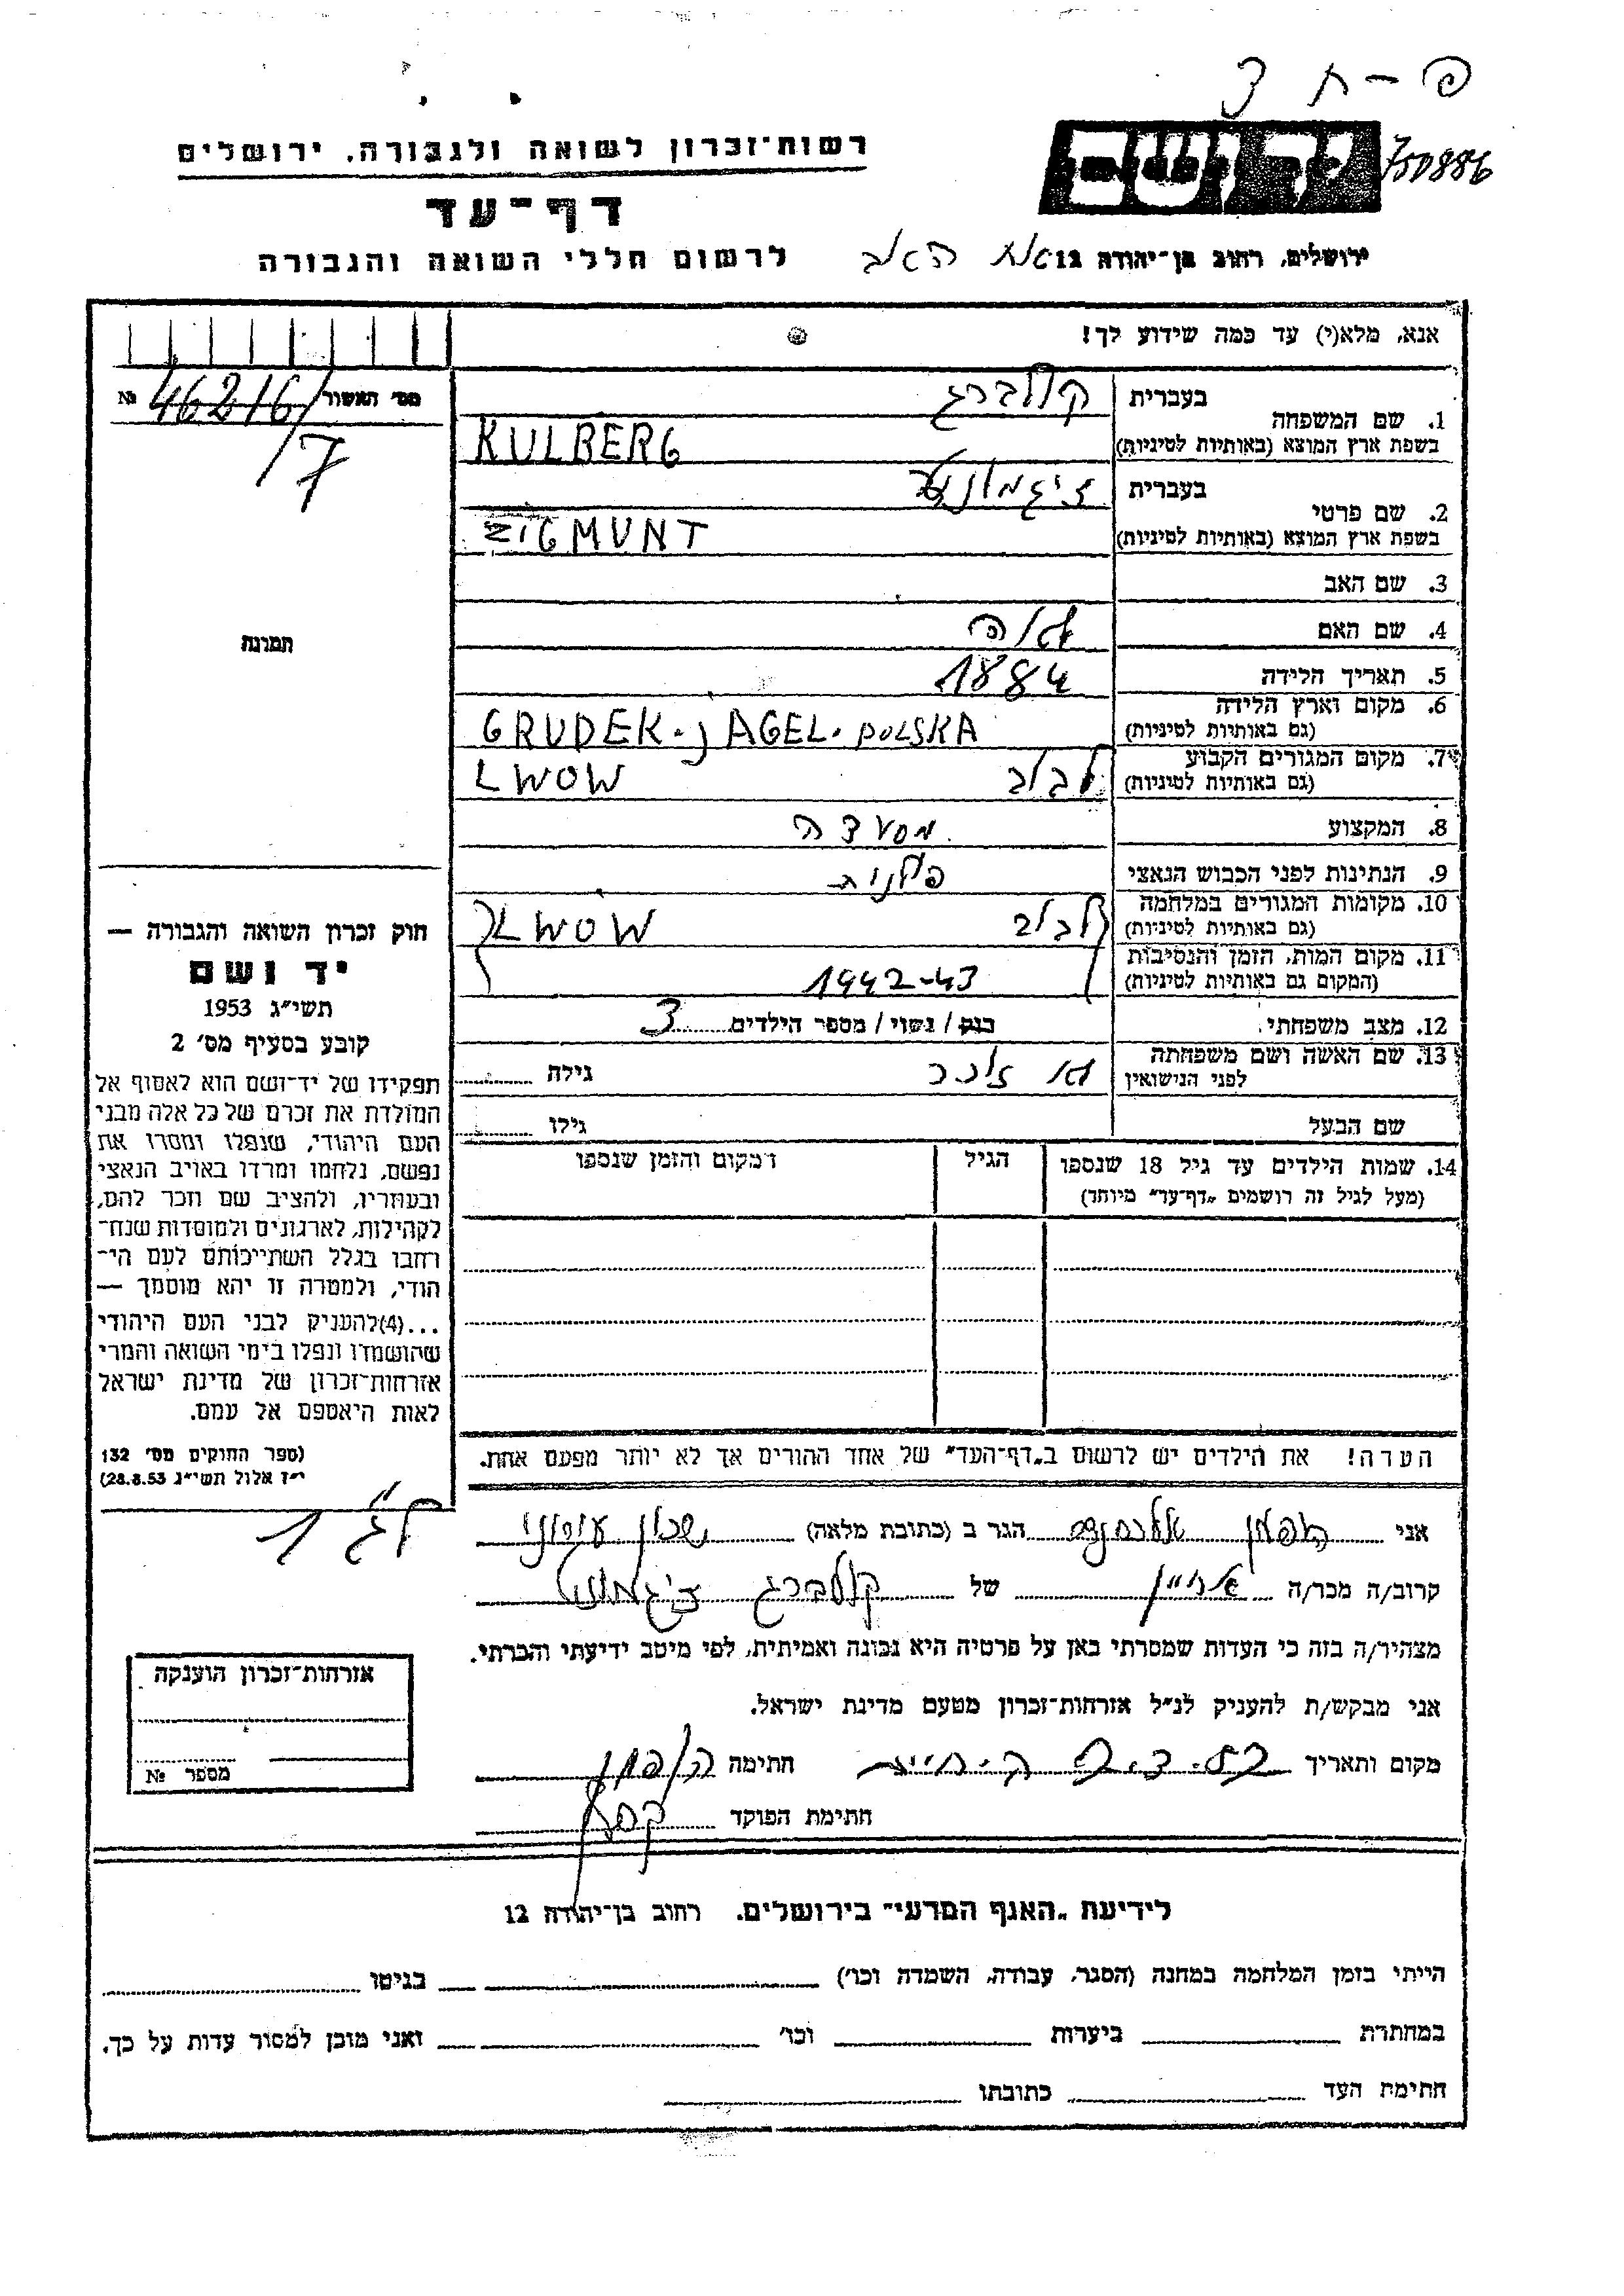 פ-ח צ
רשות־זכרון לשואה ולגבורה, ירושלים
יד ושם
דף־עד
לרשום חללי השואה והגבורה
ירושלים, רחוב בן־יהודה 12
אנא, מלא(י) עד כמה שידוע לך!
מס' האשור № 46216/
17
1. שם המשפחה
בעברית קולברג
בשפת ארץ המוצא (באותיות לטיניות) KULBERG
2. שם פרטי
בעברית זיגמונט
בשפת ארץ המוצא (באותיות לטיניות) ZIGMUNT
3. שם האב
4. שם האם
5. תאריך הלידה 1884
6. מקום וארץ הלידה
(גם באותיות לטיניות) GRUDEK. JAGEL. POLSKA
7. מקום המגורים הקבוע
(גם באותיות לטיניות) לבוב LWOW
8. המקצוע מסעדה
9. הנתינות לפני הכבוש הנאצי פולנית
10. מקומות המגורים במלחמה
(גם באותיות לטיניות) לבוב LWOW
11. מקום המות, הזמן והנסיבות
(המקום גם באותיות לטיניות) 1942-43
12. מצב משפחתי: רווק / נשוי / מספר הילדים 3
13. שם האשה ושם משפחתה
לפני הנישואין לא זוכר גילה
שם הבעל גילו
14. שמות הילדים עד גיל 18 שנספו הגיל המקום והזמן שנספו
(מעל לגיל זה רושמים "דף־עד" מיוחד)
הערה! את הילדים יש לרשום ב"דף־העד" של אחד ההורים אך לא יותר מפעם אחת.
תמונה
חוק זכרון השואה והגבורה —
יד ושם
תשי"ג 1953
קובע בסעיף מס' 2
תפקידו של יד־ושם הוא לאסוף אל
המולדת את זכרם של כל אלה מבני
העם היהודי, שנפלו ומסרו את
נפשם, נלחמו ומרדו באויב הנאצי
ובעוזריו, ולהציב שם וזכר להם,
לקהילות, לארגונים ולמוסדות שנח־
רבו בגלל השתייכותם לעם הי־
הודי, ולמטרה זו יהא מוסמך —
...(4) להעניק לבני העם היהודי
שהושמדו ונפלו בימי השואה והמרי
אזרחות־זכרון של מדינת ישראל
לאות היאספם אל עמם.
(ספר החוקים מס' 132
י"ז אלול תשי"ג 28.8.53)
אני הופמן אלכסנדר הגר ב (כתובת מלאה) שכון עירוני
קרוב/ה מכר/ה אחיין של קולברג זיגמונט
מצהיר/ה בזה כי העדות שמסרתי כאן על פרטיה היא נכונה ואמיתית, לפי מיטב ידיעתי והכרתי.
אני מבקש/ת להעניק לנ"ל אזרחות־זכרון מטעם מדינת ישראל.
מקום ותאריך חתימה הופמן
חתימת הפוקד
אזרחות־זכרון הוענקה
מספר №
לידיעת "האגף המדעי" בירושלים, רחוב בן־יהודה 12
הייתי בזמן המלחמה במחנה (הסגר, עבודה, השמדה וכו') בגיטו
במחתרת ביערות וכו' ואני מוכן למסור עדות על כך.
חתימת העד כתובתו